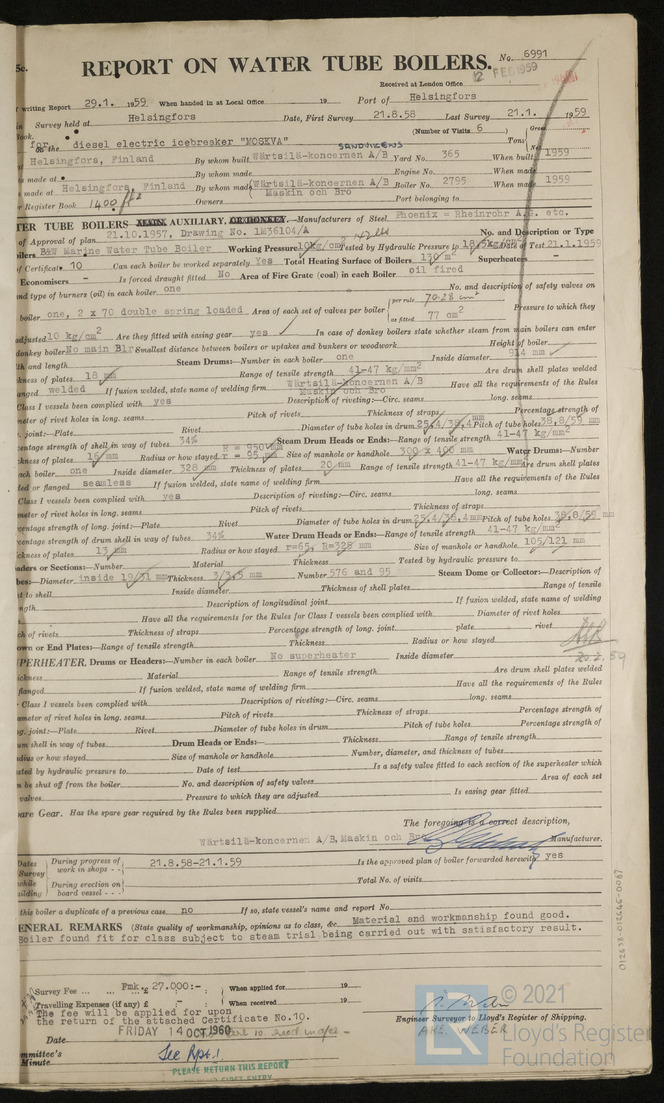 5c.
REPORT ON WATER TUBE BOILERS. No. 6991
12 FEB 1959
Received at London Office
writing Report 29.1. 1959 When handed in at Local Office 19 Port of Helsingfors
Survey held at Helsingfors Date, First Survey 21.8.58 Last Survey 21.1. 1959
Book. (Number of Visits 6 ) Gross
for on the diesel electric icebreaker "MOSKVA" Tons
Net
SANDVIKENS
Helsingfors, Finland By whom built Wärtsilä-koncernen A/B Yard No. 365 When built 1959
made at By whom made Engine No. When made
made at Helsingfors, Finland By whom made Wärtsilä-koncernen A/B Maskin och Bro Boiler No. 2795 When made 1959
Register Book 1400 Owners Port belonging to
TER TUBE BOILERS MAIN, AUXILIARY, OR DONKEY.—Manufacturers of Steel Phoenix = Rheinrohr A.G. etc.
of Approval of plan 21.10.1957, Drawing No. 1M36104/A No. and Description or Type
oilers B&W Marine Water Tube Boiler Working Pressure 10kg/cm² Tested by Hydraulic Pressure to 18,5kg/cm² Date of Test 21.1.1959
of Certificate 10 Can each boiler be worked separately Yes Total Heating Surface of Boilers 130 m² Superheaters –
Economisers – Is forced draught fitted No Area of Fire Grate (coal) in each Boiler oil fired
nd type of burners (oil) in each boiler one No. and description of safety valves on
boiler one, 2 x 70 double spring loaded Area of each set of valves per boiler per rule 70.28 cm² as fitted 77 cm² Pressure to which they
adjusted 10 kg/cm² Are they fitted with easing gear yes In case of donkey boilers state whether steam from main boilers can enter
donkey boiler No main Blr Smallest distance between boilers or uptakes and bunkers or woodwork Height of boiler
th and length Steam Drums:—Number in each boiler one Inside diameter 914 mm
kness of plates 18 mm Range of tensile strength 41-47 kg/mm² Are drum shell plates welded
anged welded If fusion welded, state name of welding firm Wärtsilä-koncernen A/B Maskin och Bro Have all the requirements of the Rules
Class I vessels been complied with yes Description of riveting:—Circ. seams long. seams
meter of rivet holes in long. seams Pitch of rivets Thickness of straps Percentage strength of
joint:—Plate Rivet Diameter of tube holes in drum 25,4/38,4 mm Pitch of tube holes 38,8/59 mm
centage strength of shell in way of tubes 34% Steam Drum Heads or Ends:—Range of tensile strength 41-47 kg/mm²
kness of plates 16 mm Radius or how stayed R = 950 mm r = 95 mm Size of manhole or handhole 300 x 400 mm Water Drums:—Number
ach boiler one Inside diameter 328 mm Thickness of plates 20 mm Range of tensile strength 41-47 kg/mm² Are drum shell plates
ded or flanged seamless If fusion welded, state name of welding firm Have all the requirements of the Rules
Class I vessels been complied with yes Description of riveting:—Circ. seams long. seams
meter of rivet holes in long. seams Pitch of rivets Thickness of straps
centage strength of long. joint:—Plate Rivet Diameter of tube holes in drum 25,4/38,4mm Pitch of tube holes 38,8/59 mm
centage strength of drum shell in way of tubes 34% Water Drum Heads or Ends:—Range of tensile strength 41-47 kg/mm²
ckness of plates 13 mm Radius or how stayed r=65, R=328 mm Size of manhole or handhole 105/121 mm
aders or Sections:—Number Material Thickness Tested by hydraulic pressure to
bes:—Diameter inside 19/31 mm Thickness 3/3,5 mm Number 576 and 95 Steam Dome or Collector:—Description of
t to shell Inside diameter Thickness of shell plates Range of tensile
ngth Description of longitudinal joint If fusion welded, state name of welding
Have all the requirements for the Rules for Class I vessels been complied with Diameter of rivet holes
ch of rivets Thickness of straps Percentage strength of long. joint plate rivet
own or End Plates:—Range of tensile strength Thickness Radius or how stayed
20.2.59
PERHEATER, Drums or Headers:—Number in each boiler No superheater Inside diameter
ickness Material Range of tensile strength Are drum shell plates welded
flanged If fusion welded, state name of welding firm Have all the requirements of the Rules
Class I vessels been complied with Description of riveting:—Circ. seams long. seams
ameter of rivet holes in long. seams Pitch of rivets Thickness of straps Percentage strength of
g. joint:—Plate Rivet Diameter of tube holes in drum Pitch of tube holes Percentage strength of
um shell in way of tubes Drum Heads or Ends:— Thickness Range of tensile strength
adius or how stayed Size of manhole or handhole Number, diameter, and thickness of tubes
sted by hydraulic pressure to Date of test Is a safety valve fitted to each section of the superheater which
n be shut off from the boiler No. and description of safety valves Area of each set
valves Pressure to which they are adjusted Is easing gear fitted
are Gear. Has the spare gear required by the Rules been supplied
The foregoing is a correct description,
Wärtsilä-koncernen A/B, Maskin och Bro Manufacturer.
Dates Survey while building During progress of work in shops - - 21.8.58-21.1.59 Is the approved plan of boiler forwarded herewith yes
During erection on board vessel - - - Total No. of visits
this boiler a duplicate of a previous case no If so, state vessel's name and report No.
ENERAL REMARKS (State quality of workmanship, opinions as to class, &c. Material and workmanship found good.
Boiler found fit for class subject to steam trial being carried out with satisfactory result.
Survey Fee ... ... Fmk. £ 27.000:- When applied for 19
Travelling Expenses (if any) £ When received 19
The fee will be applied for upon
the return of the attached Certificate No.10.
FRIDAY 14 OCT 1960
Engineer Surveyor to Lloyd's Register of Shipping.
AKE. WEBER
Date
mmittee's
Minute
See Rpt.1
PLEASE RETURN THIS REPORT
012638-012646-0067
© 2021
LR
Lloyd's Register
Foundation